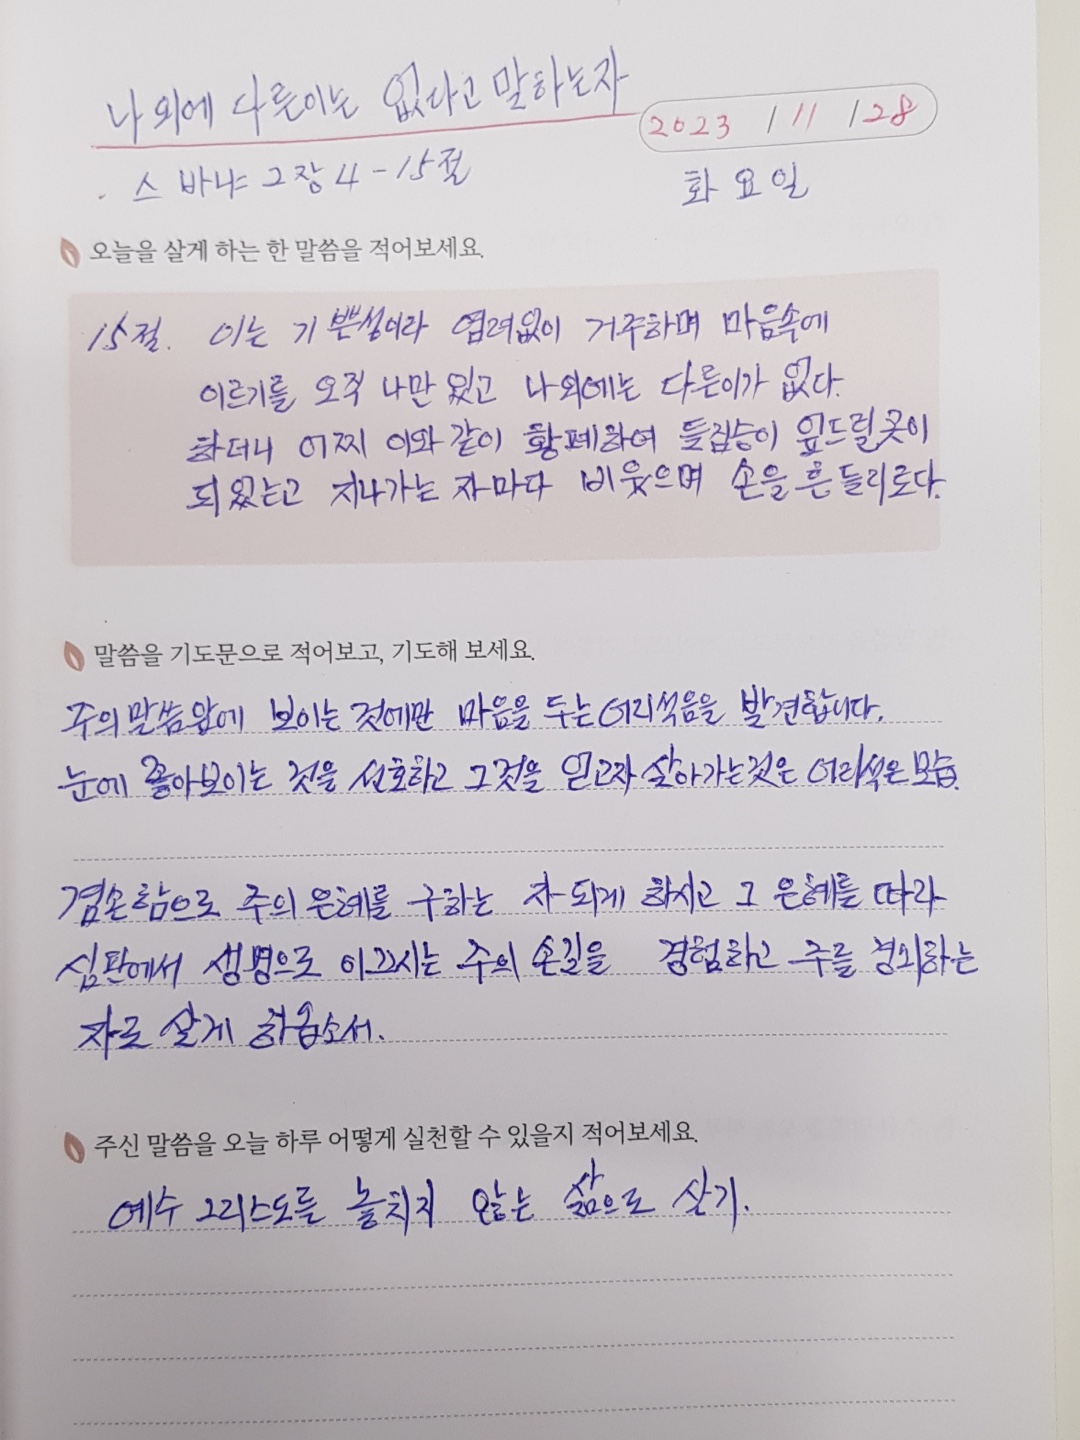 나 외에 다른이는 없다고 말하는자
2023 / 11 / 28
스바냐 2장 4-15절
화요일
오늘을 살게 하는 한 말씀을 적어보세요.
15절. 이는 기쁜성이라 염려없이 거주하며 마음속에
이르기를 오직 나만 있고 나 외에는 다른이가 없다.
하더니 어찌 이와 같이 황폐하여 들짐승이 엎드릴 곳이
되었는고 지나가는 자마다 비웃으며 손을 흔들리로다.
말씀을 기도문으로 적어보고, 기도해 보세요.
주의 말씀 앞에 보이는 것에만 마음을 두는 어리석음을 발견합니다.
눈에 좋아보이는 것을 선호하고 그것을 얻고자 살아가는것은 어리석은 모습.
겸손함으로 주의 은혜를 구하는 자 되게 하시고 그 은혜를 따라
심판에서 생명으로 이끄시는 주의 손길을 경험하고 주를 경외하는
자로 살게 하옵소서.
주신 말씀을 오늘 하루 어떻게 실천할 수 있을지 적어보세요.
예수 그리스도를 놓치지 않는 삶으로 살기.